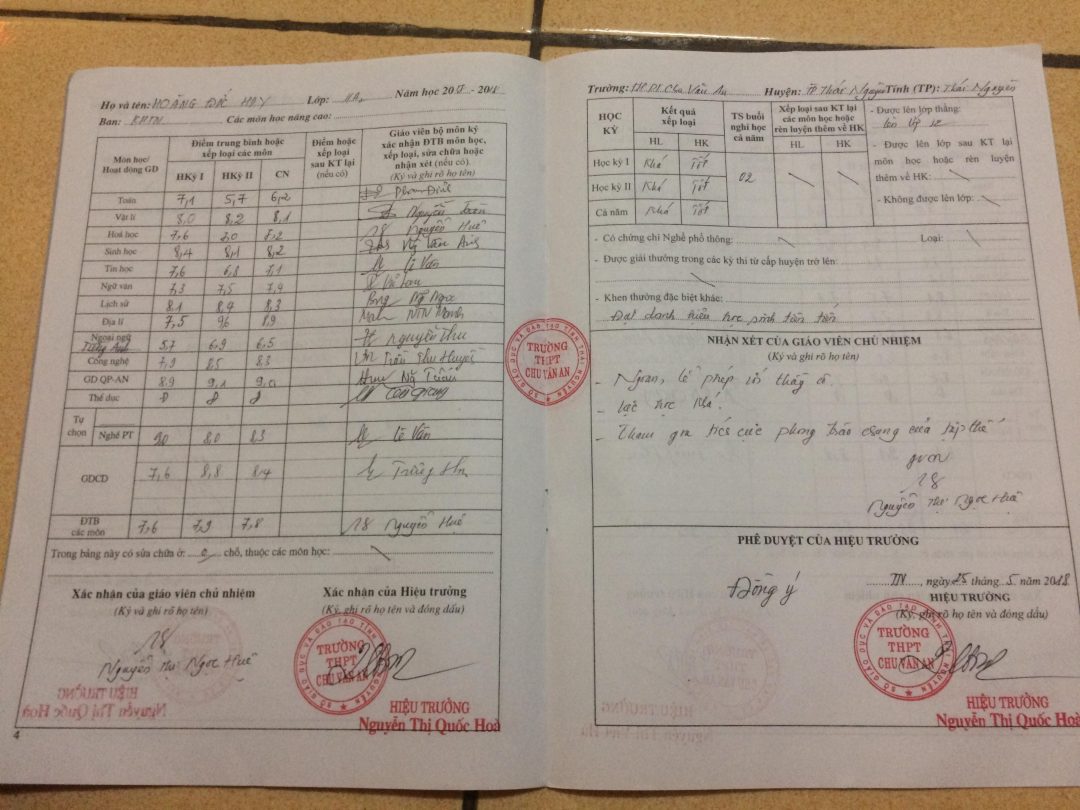 Họ và tên: HOÀNG ĐỨC HAY Lớp: 11A Năm học 2017 - 2018
Ban: KHTN Các môn học nâng cao:
Môn học/ Hoạt động GD
Điểm trung bình hoặc xếp loại các môn
HKỳ I HKỳ II CN
Điểm hoặc xếp loại sau KT lại (nếu có)
Giáo viên bộ môn ký xác nhận ĐTB môn học, xếp loại, sửa chữa hoặc nhận xét (nếu có).
(Ký và ghi rõ họ tên)
Toán 7,1 5,7 6,2
Vật lí 8,0 8,2 8,1 Nguyễn
Hoá học 7,6 Nguyễn Huê
Sinh học 8,4 8,1 8,2 Vũ Vân Anh
Tin học 7,6 6,8 7,1 Lê Vân
Ngữ văn 7,3 7,5 7,4
Lịch sử 8,1 8,4 8,3 Ngọc
Địa lí 7,5 9,6 8,9
Ngoại ngữ Tiếng Anh 5,7 6,9 6,5 Nguyễn Thu
Công nghệ 7,9 8,5 8,3 Trần Thu Huyền
GD QP-AN 8,9 9,1 9,0
Thể dục Đ Đ Đ
Tự chọn Nghề PT 9,0 8,0 8,3 Lê Vân
GDCD 7,6 8,8 8,4
ĐTB các môn 7,6 7,9 7,8 Nguyễn Huê
Trong bảng này có sửa chữa ở: 0 chỗ, thuộc các môn học:
Xác nhận của giáo viên chủ nhiệm
(Ký và ghi rõ họ tên)
Nguyễn Thị Ngọc Huê
Xác nhận của Hiệu trưởng
(Ký, ghi rõ họ tên và đóng dấu)
SỞ GIÁO DỤC VÀ ĐÀO TẠO TỈNH THÁI NGUYÊN
TRƯỜNG
THPT
CHU VĂN AN
HIỆU TRƯỞNG
Nguyễn Thị Quốc Hoà
4
SỞ GIÁO DỤC VÀ ĐÀO TẠO TỈNH THÁI NGUYÊN
TRƯỜNG
THPT
CHU VĂN AN
Trường: THPT Chu Văn An Huyện: TP Thái Nguyên Tỉnh (TP): Thái Nguyên
HỌC KỲ
Kết quả xếp loại
HL HK
TS buổi nghỉ học cả năm
Xếp loại sau KT lại các môn học hoặc rèn luyện thêm về HK
HL HK
Học kỳ I Khá Tốt
Học kỳ II Khá Tốt 02
Cả năm Khá Tốt
- Được lên lớp thẳng:
Lên lớp 12
- Được lên lớp sau KT lại
môn học hoặc rèn luyện
thêm về HK:
- Không được lên lớp:
- Có chứng chỉ Nghề phổ thông: Loại:
- Được giải thưởng trong các kỳ thi từ cấp huyện trở lên:
- Khen thưởng đặc biệt khác:
Đạt danh hiệu học sinh tiên tiến
NHẬN XÉT CỦA GIÁO VIÊN CHỦ NHIỆM
(Ký và ghi rõ họ tên)
- Ngoan, lễ phép với thầy cô.
- Lực học khá.
- Tham gia tích cực phong trào chung của tập thể
GVCN
Nguyễn Thị Ngọc Huê
PHÊ DUYỆT CỦA HIỆU TRƯỞNG
Đồng ý
TN, ngày 25 tháng 5 năm 2018
HIỆU TRƯỞNG
(Ký, ghi rõ họ tên và đóng dấu)
SỞ GIÁO DỤC VÀ ĐÀO TẠO TỈNH THÁI NGUYÊN
TRƯỜNG
THPT
CHU VĂN AN
HIỆU TRƯỞNG
Nguyễn Thị Quốc Hoà